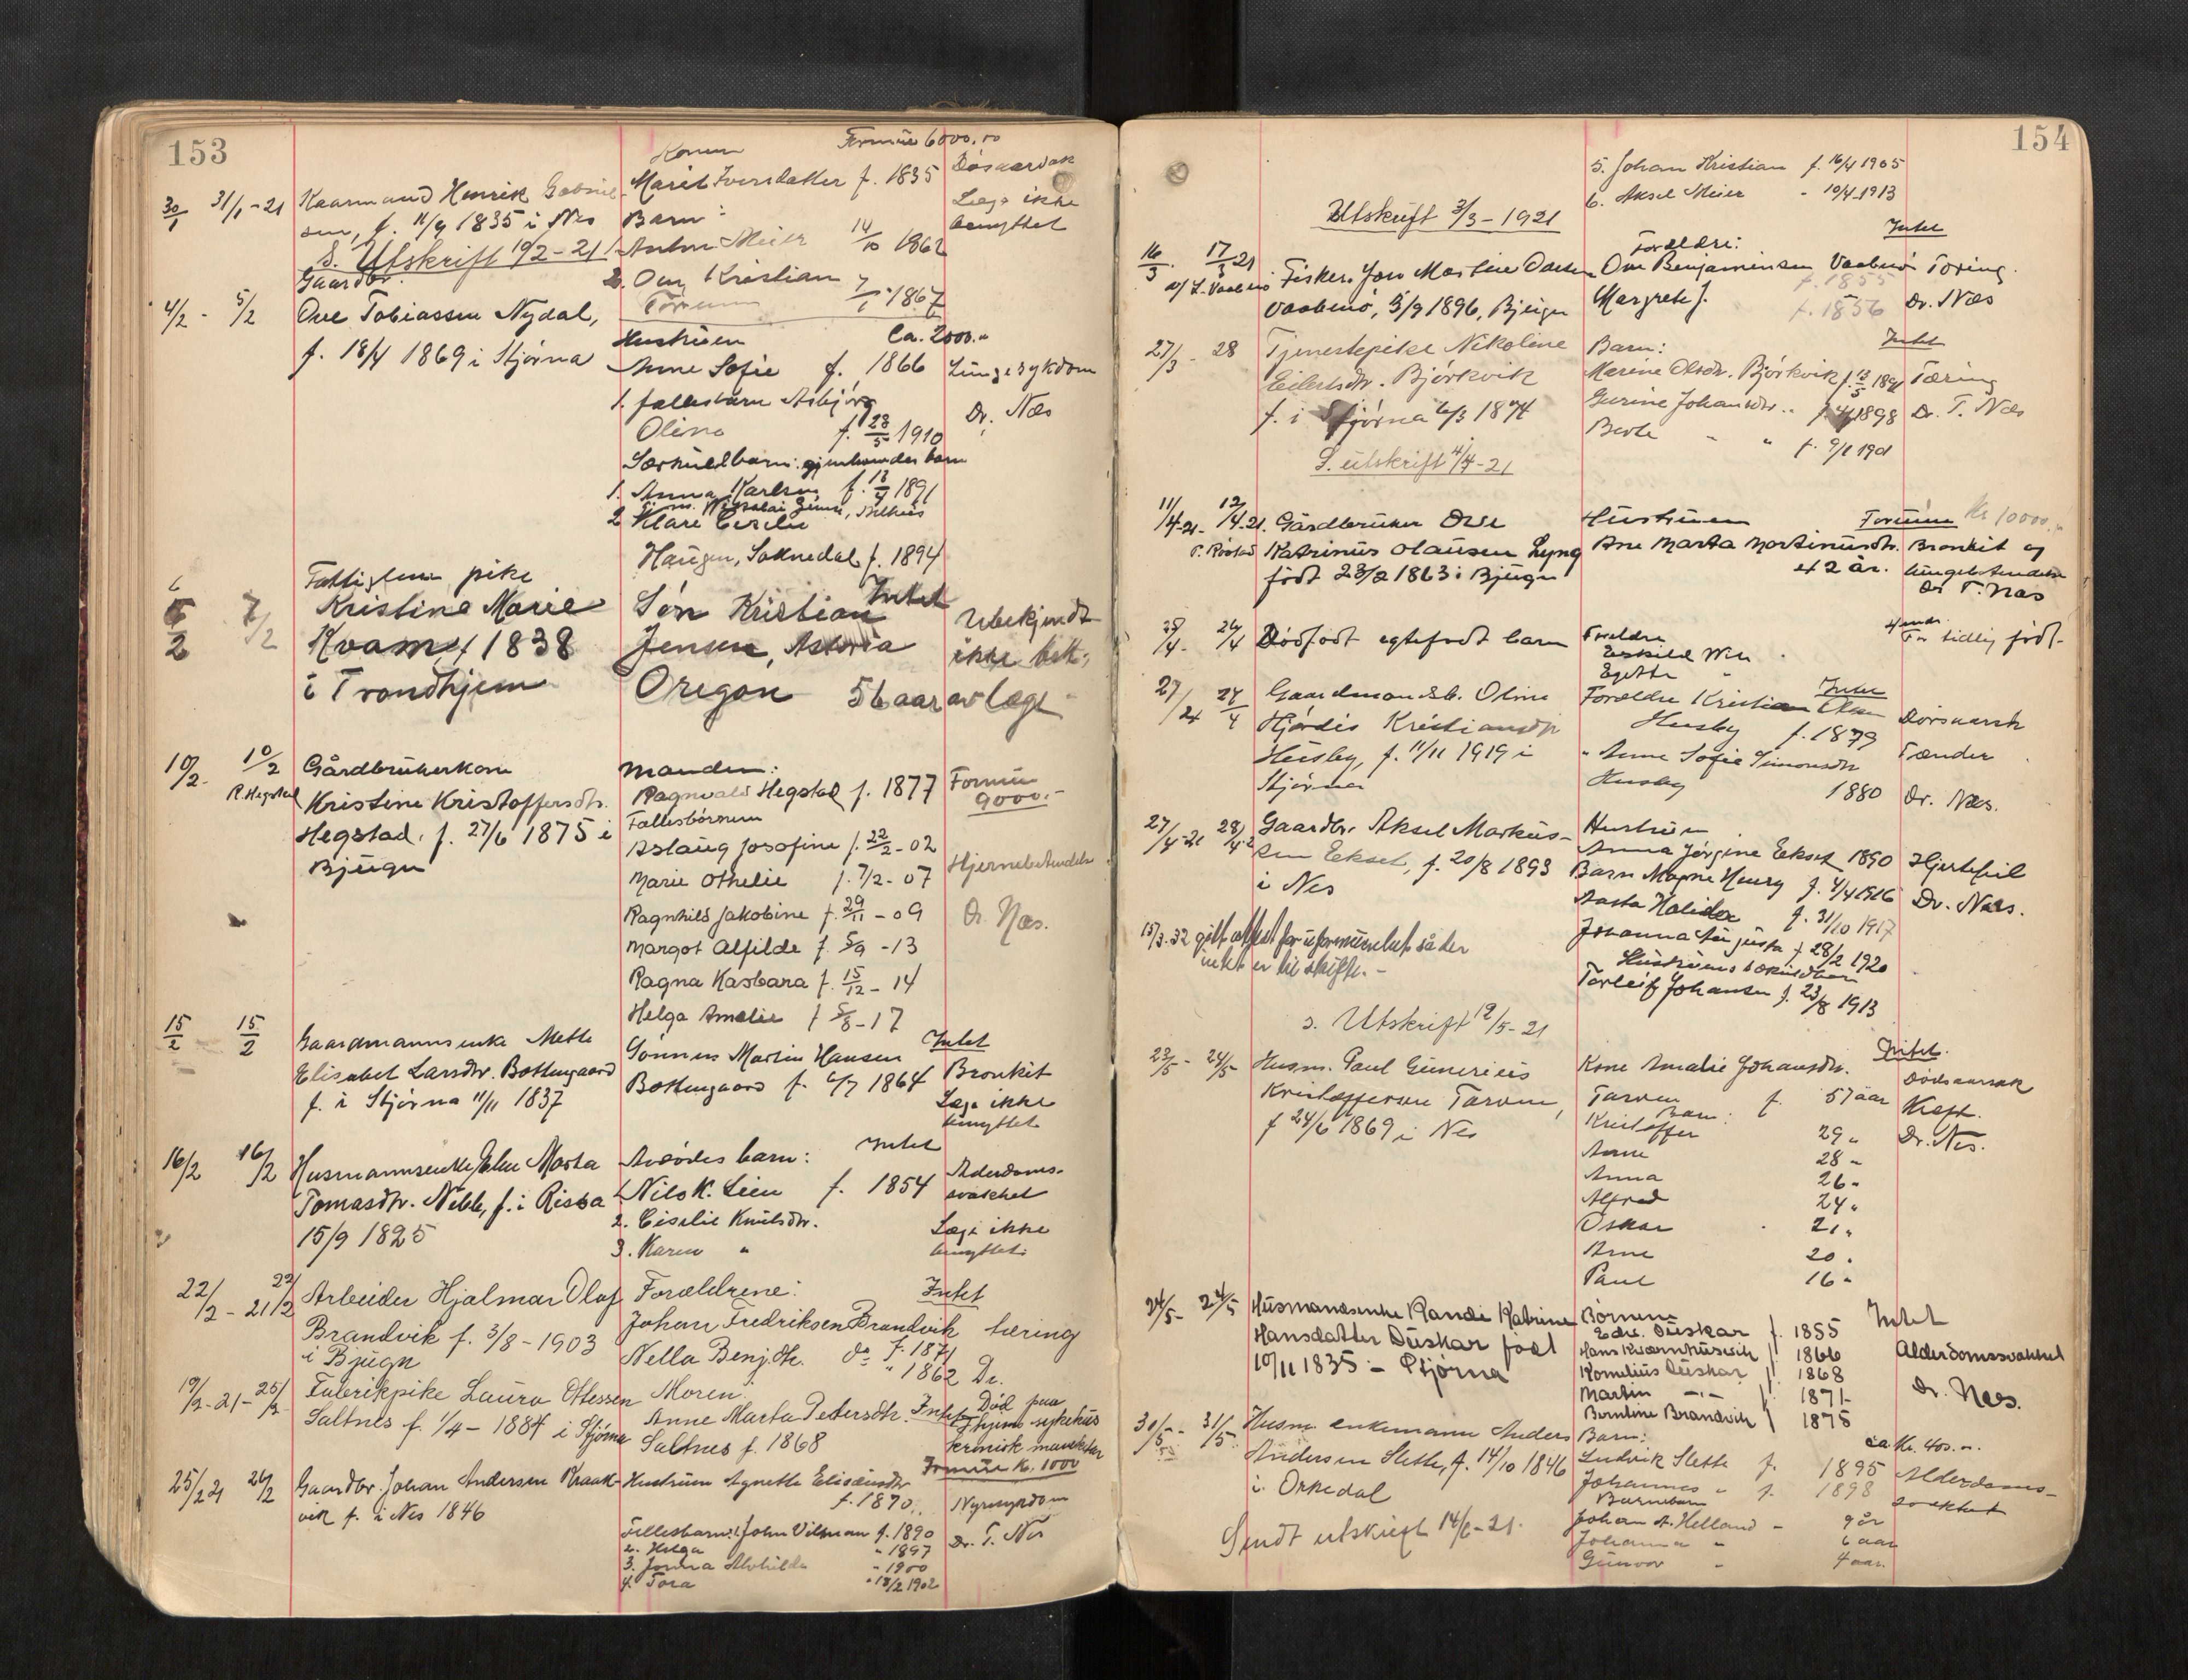 153
Formue 6000.00
Konen
30/1 31/1-21 Kaarmand Henrik Gabriel-
Marit Iversdatter f. 1835
sen, f. 11/9 1835 i Nes
Barn:
Læge ikke
benyttet
S. Utskrift 1/2-21
Anton Meier 14/10 1862
2. Ove Kristian 7/1 1867
Gaardbr.
4/2 - 5/2 Ove Tobiassen Nydal,
f. 18/4 1869 i Stjørna
Formue
Ca. 2000.-
Hustruen
Anne Sofie f. 1866
Lungesykdom
Dr. Næs
1. fællesbarn Asbjørg
Oline f. 23/5 1910
Særkuldbarn: gjenlevendes barn
1. Anna Karlsen f. 18/4 1891
2 Klara Cecilie
Haugen, Soknedal f. 1894
6/2 7/2
Fattiglem pike
Kristine Marie
Kvam f 1838
i Trondhjem
Intet
Søn Kristian
Jensen, Astoria
Oregon 56 aar
Ubekjendt
ikke beh.
av læge
10/2 - 10/2
R. Hegstad
Gårdbrukerkone
Kristine Kristoffersdtr.
Hegstad. f. 27/6 1875 i
Bjugn
Manden:
Ragnvald Hegstad f. 1877
Fællesbørnene
Aslaug Josofine f. 22/2-02
Marie Othelie f. 7/2-07
Ragnhild Jakobine f. 29/11-09
Margot Alfilde f. 5/9-13
Ragna Kasbara f. 15/12-14
Helga Amalie f 5/8-17
Formue
9000.-
Hjernebetændelse
Dr. Næs.
15/2 15/2
Gaardmannsenke Mette
Elisabet Larsdtr. Bottengaard
f. i Stjørna 11/11 1837
Sønnen Martin Hansen
Bottengaard f. 6/7 1864
Intet
Bronkit
Læge ikke
benyttet
16/2 16/2
Husmannsenke Elen Marta
Tomasdtr. Nebb, f. i Rissa
15/9 1825
Avdødes barn: Intet
1. Nils K. Lien f. 1854
2. Ciselie Knutsdtr.
3. Karen "
Alderdoms-
svakhet
Læge ikke
benyttet
22/2 - 21 22/2
Arbeider Hjalmar Olaf
Brandvik f. 3/8-1903
i Bjugn
Forældrene:
Johan Fredriksen Brandvik
f. 1871
Nella Benj.dtr. do " 1862
Intet
tæring
Dr.
19/2-21- 25/2
Fabrikpike Laura Ottessen
Saltnes f. 1/4-1884 i Stjørna
Moren:
Anne Marta Petersdtr.
Saltnes f. 1868
Intet
Død paa
Thjems sykehus
kronisk mavekatar
25/2 21 26/2
Gaardbr. Johan Andersen Kraak-
vik f. i Nes 1846
Hustruen Agnethe Eliseusdtr
f. 1870.
Fællesbarn: 1 John Vilman f. 1890
2. Helga " 1897
3. Jonna Alvhilda " 1900
4. Tora " 18/2 1902
Formue kr. 1000
Nyresykdom
Dr. T. Næs
154
5. Johan Kristian f. 16/4 1905
6. Aksel Meier - 10/4-1913
Utskrift 3/3-1921
16/3 17/3 21
Fisker Jon Martin Olsen
Vaabenø, 3/9 1896, Bjugn
Forældre:
Ove Benjaminsen Vaabenø
f. 1855
Margrete J. f. 1856
Intet
Tæring.
Dr. Næs
27/3 - 28
Tjenestepike Nikoline
Eilertsdtr. Bjørkvik
f. i Stjørna 6/3 1874
Barn:
Marine Olsdr. Bjørkvik
Gurine Johansdtr. 1898
Berte " " f. 9/8 1901
Intet
Tæring
Dr. T. Næs
S. utskrift 4/4-21
11/4-21- 12/4-21.
Gårdbruker Ove
Katrinus Olausen Lyng
født 23/2 1863 i Bjugn
Hustruen
Ane Marta Martinusdtr.
42 år.
Formue Kr 10000.-
Bronkit og
lungebetændelse
Dr T. Næs
Dødfødt egtefødt barn
Forældre
For tidlig født
27/4 27/4
Gaardmandsb. Oline
Hjørdis Kristiansdtr
Husby, f. 11/11 1919 i
Stjørna
Forældre Kristian Olsen
Husby f. 1879
" Anne Sofie Simonsdtr
Husby 1880
Intet
Dødsaarsak
Tænder
Dr. Næs.
27/4-21 28/4-21
Gaardbr. Aksel Markus-
sen Eekset, f. 20/8 1893
i Nes
Hustruen
Anna Jørgine Eekset 1890
Barn Magne Henry f. 4/4 1916
Aasta Halida f. 31/10 1917
Johanna Augusta f 28/2 1920
Hustruens særkuldbarn
Torleif Johansen f. 23/8 1913
Hjertefeil
Dr. Næs.
15/3.32 gitt attest for uformuenhet så der
intet er til skifte.-
S. Utskrift 12/5-21
23/5 - 24/5
Husm. Paul Gunerius
Kristoffersen Tarven,
f 24/6 1869 i Nes
Kone Amalie Johansdtr.
Tarven f. 57 aar
Barn:
Kristoffer 29 "
Arne 28 -
Anna 26 -
Alfred 24 "
Oskar 21 "
Arne 20 "
Paul 16 -
Intet.
Dødsaarsak
Kræft.
Dr. Næs.
24/5- 24/5
Husmandsenke Randi Katrine
Hansdatter Duskar født
10/11 1835 i Stjørna
Børnene
Edv. Duskar f. 1855
Hans 1866
Kornelius Duskar f. 1868
Martin -"- f. 1871
Berntine Brandvik f 1875
Intet
Alderdomssvakhet
Dr. Næs.
30/5 - 31/5
Husm. enkemann Anders
Andersen Slette, f. 14/10 1846
i Orkedal
Barn:
Ludvik Slette f. 1895
Johannes " f. 1898
Barnebarn
Johan A. Helland - 9 år
Johanna " - 6 aar
Gunvor - 4 aar.
ca Kr. 400.-.
Alderdoms-
svakhet
Sendt utskrift 14/6-21.